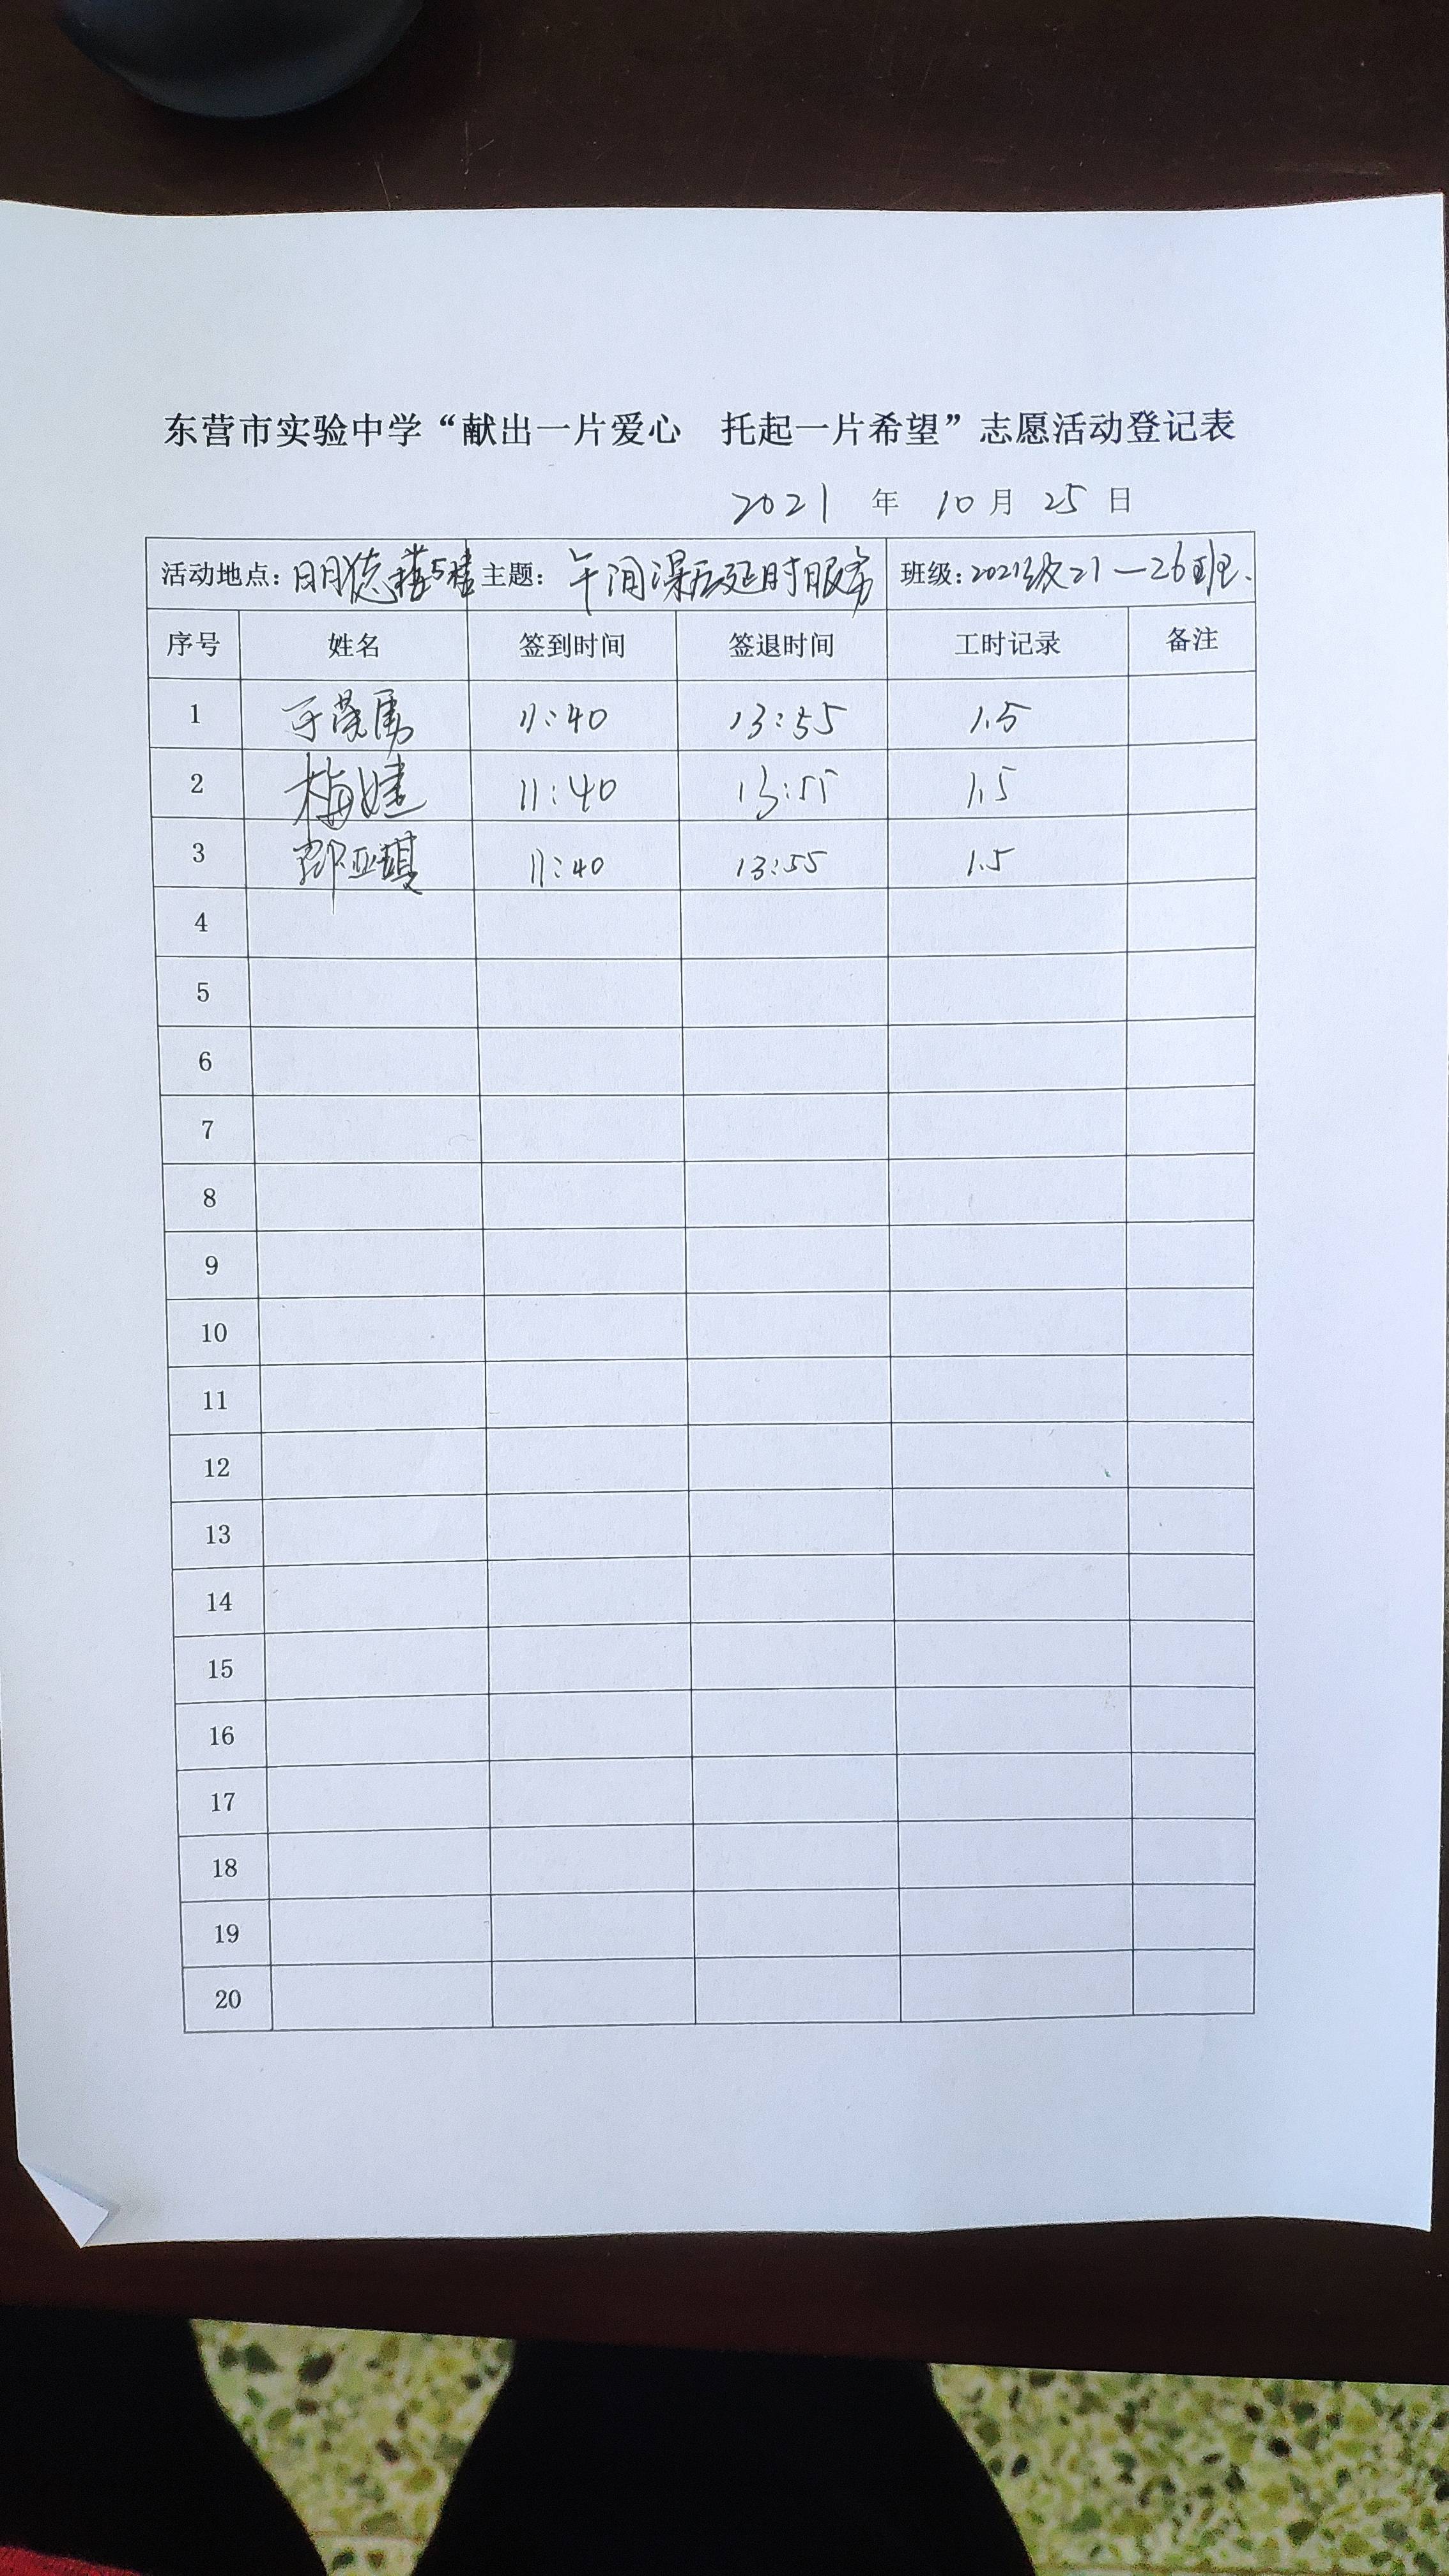 东营市实验中学“献出一片爱心 托起一片希望”志愿活动登记表
2021 年 10 月 25 日
活动地点：明德楼5楼 主题：午间课后延时服务 班级：2021级21—26班.
序号 姓名 签到时间 签退时间 工时记录 备注
1 于荣勇 11:40 13:55 1.5
2 梅婕 11:40 13:55 1.5
3 亚琪 11:40 13:55 1.5
4
5
6
7
8
9
10
11
12
13
14
15
16
17
18
19
20